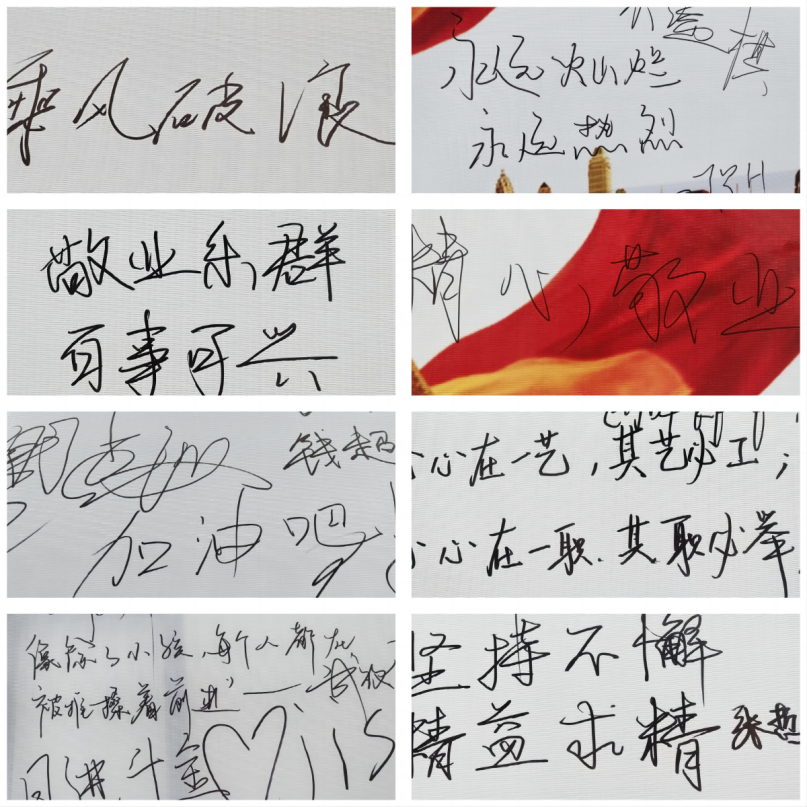 乘风破浪
永远灿烂
永远热烈
敬业乐群
百事可兴
精心,敬业
钱超
加油吧
心心在一艺,其艺必工;
心心在一职,其职必举
小孩,每个人都在
被推搡着前进——
日进斗金
坚持不懈
精益求精